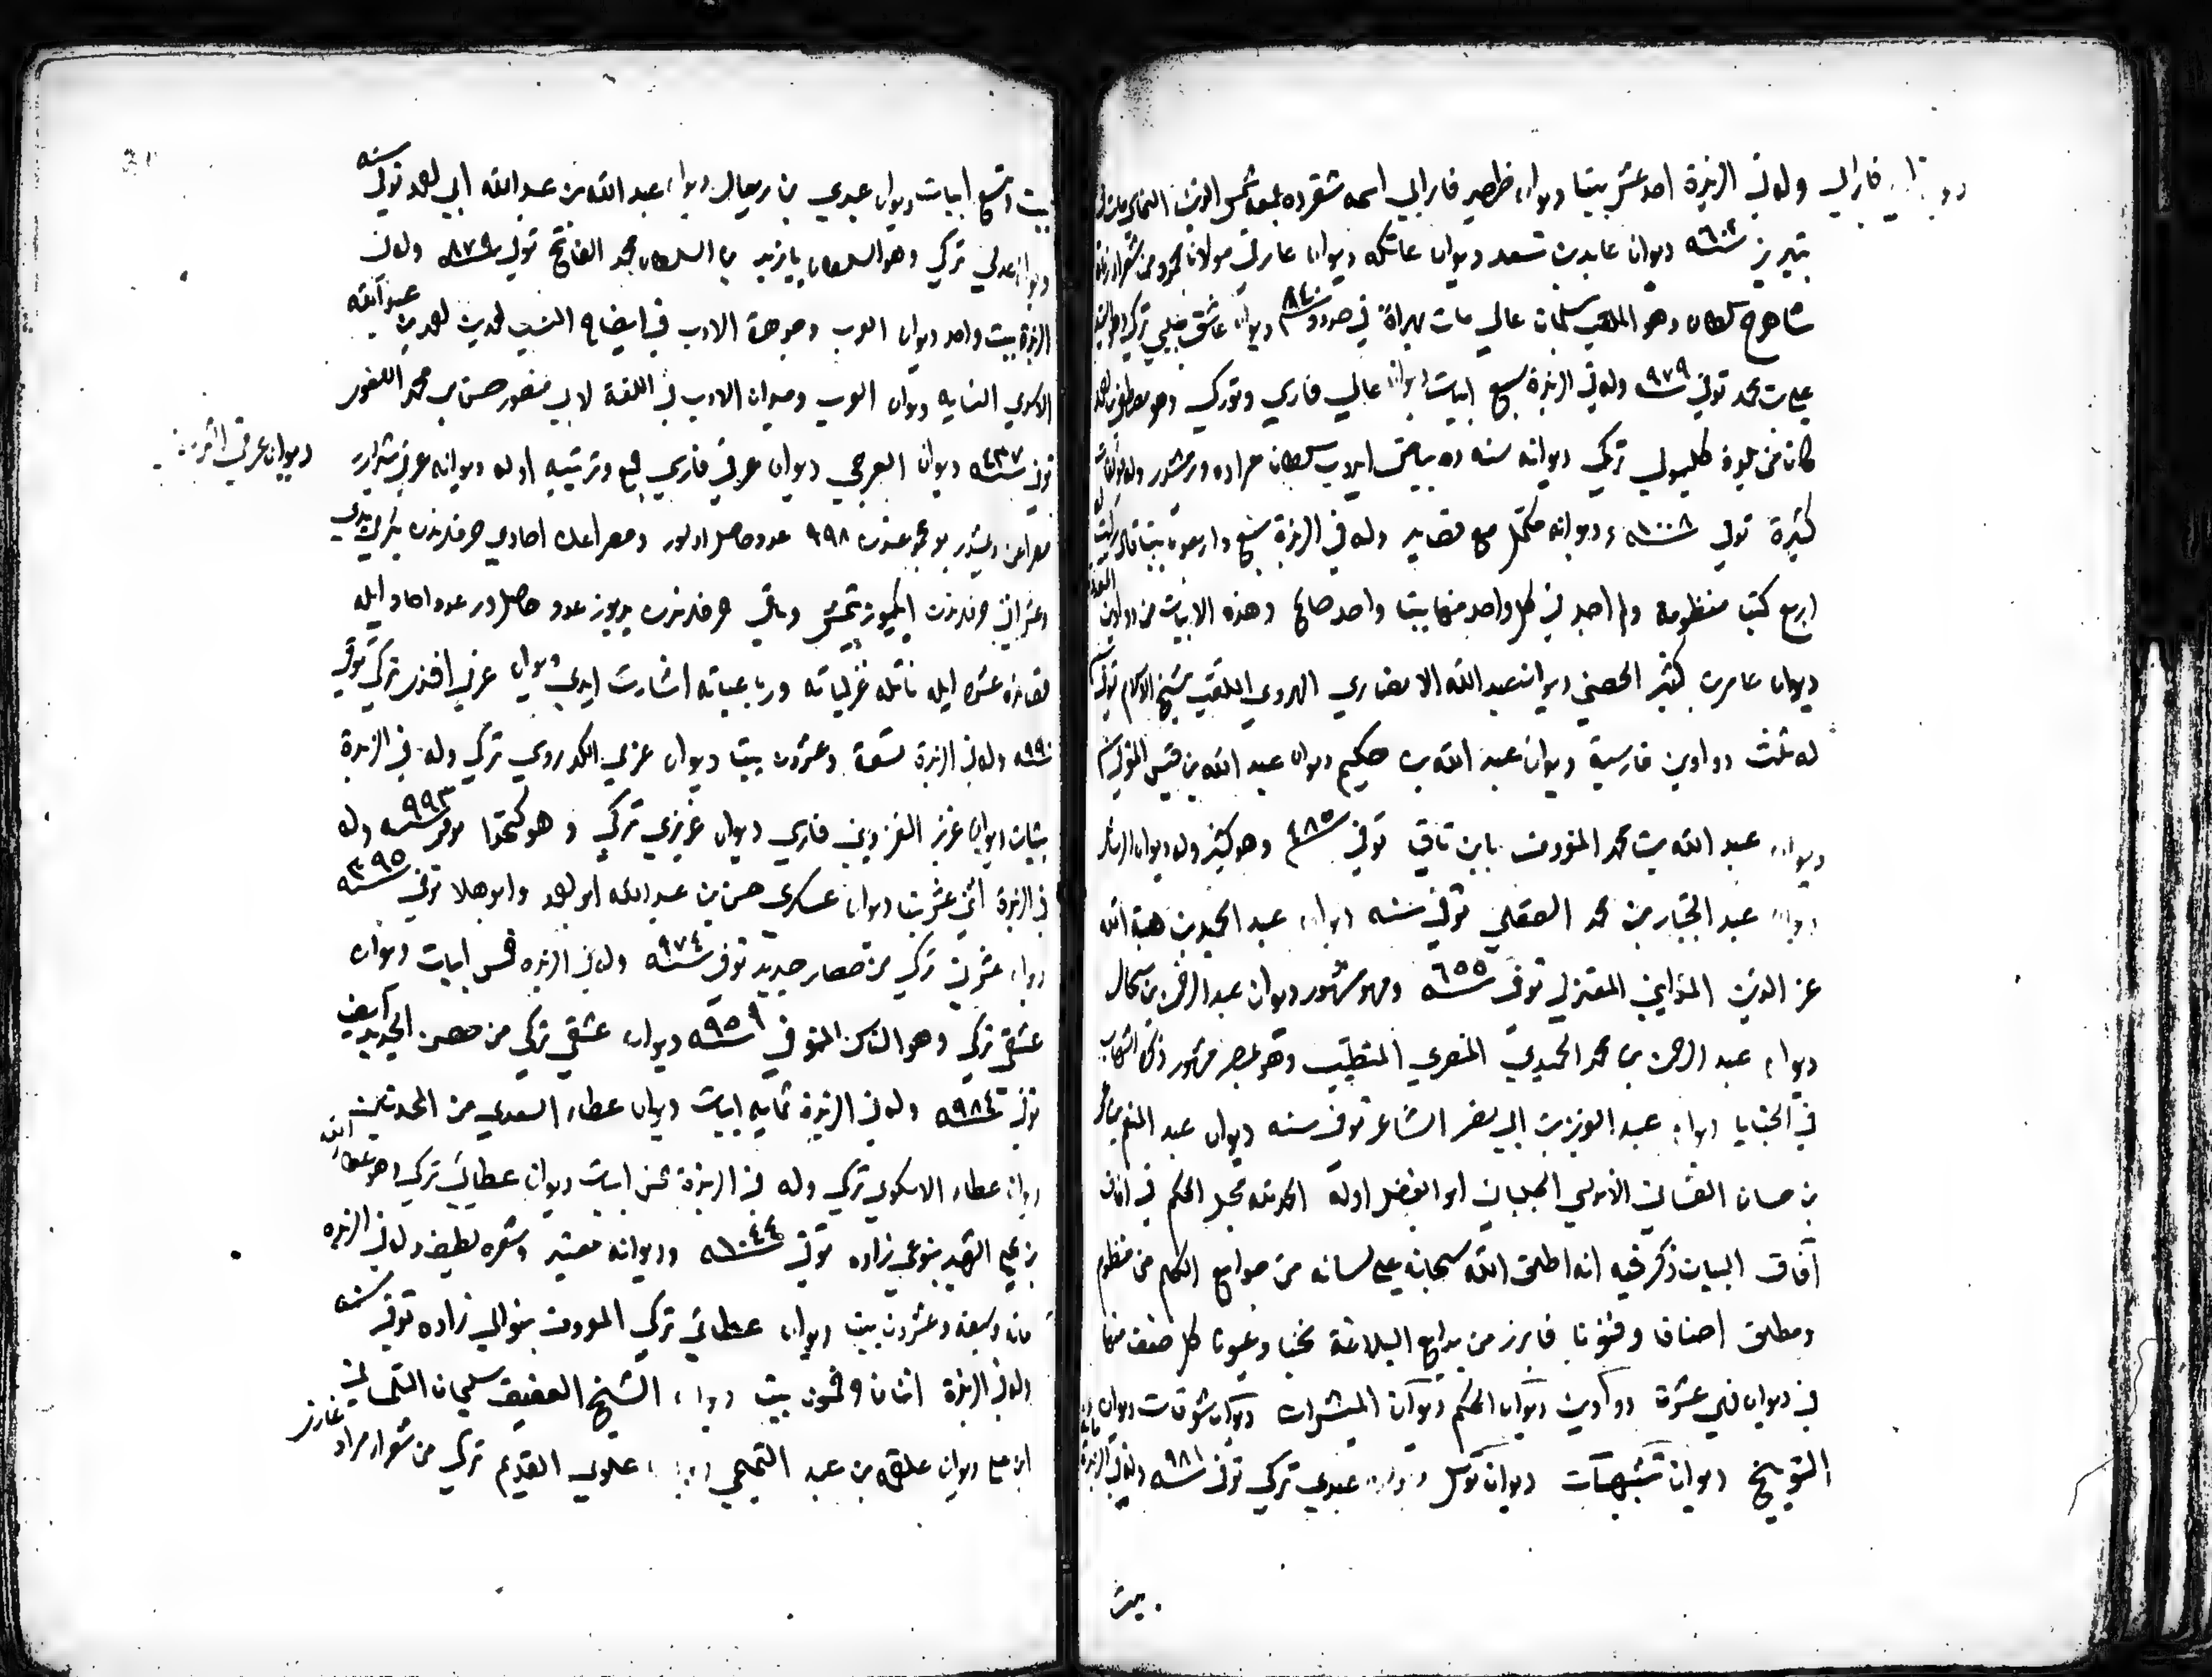 فارابي وله في الزبدة احد عشر بيتا ديوان ظهير فارابي اسمه شعرده جمعه شمس الدين
تبريز سنه ٦٠٢ ديوان عابد بن سعد ديوان عاتكه ديوان عارفي مولانا محمود من شعراء زمان
شاهرخ سلطان وهو الملقب سلمان ثاني مات بهراة في حدود سنه ٨٤٠ ديوان عاشق چلبي تركي وهو السيد
علي بن محمد توفي سنه ٩٧٩ وله في الزبدة سبع ابيات ديوان عالي فارسي وتوركي وهو مصطفى بن احمد
كان من بلدة كليبولي تركي ديوانه سنه ده بياض ايدب سلطان مراده ورمشدر وله مؤلفات
كثيرة توفي سنه ١٠٠٨ وديوانه مكمل مع قصايد وله في الزبدة تسع واربعون بيتا قال رايت له
اربع كتب منظومة ولم اجد في كل واحد منها بيتا واحد صالحا وهذه الابيات من دواوين
ديوان عامر بن كثير الحصني ديوان عبد الله الانصاري الهروي الملقب بشيخ الاسلام توفي سنه
له ثلث دواوين فارسية ديوان عبد الله بن حكيم ديوان عبد الله بن قيس المتوفى سنه
ديوان عبد الله بن محمد المعروف بابن ناقيا توفي سنه ٤٨٥ وهو كثير وله ديوان الرسائل
ديوان عبد الجبار بن محمد الصقلي توفي سنه ديوان عبد الحميد بن هبة الله
عز الدين المدايني المعتزلي توفي سنه ٦٥٥ وهو مشهور ديوان عبد الرحمن بن
ديوان عبد الرحمن بن محمد الحميدي المصري المتطبب وهو بمصر مشهور ذكره الشهاب
في الخبايا ديوان عبد العزيز بن ابي نصر الشاعر توفي سنه ديوان عبد المنعم بن عمر
بن حسان الغساني الاندلسي الجلياني ابو الفضل اوله الحمد لله مجل الحكم في
آفاق البيان ذكر فيه انه اطلق الله سبحانه على لسانه من جوامع الكلم من منظوم
ومطلق اصنافا وفنونا فابرز من بدايع البلاغة نخبا وعيونا كل صنف منها
في ديوان فهي عشرة دواوين ديوان الحكم ديوان المبشرات ديوان شوقيات ديوان
التوبيخ ديوان تشبيهات ديوان ترسل ديوان عبدي تركي توفي سنه ٩٨١ وله في الزبدة
بيت
بيت وتسع ابيات ديوان عبدي ديوان عبد الله بن عبد الله ابي احمد توفي سنه
ديوان عدلي تركي وهو السلطان بايزيد بن السلطان محمد الفاتح توفي سنه ٨٧٩ وله في
الزبدة بيت واحد ديوان العرب وجوهرة الادب في ايضاح النسب لمحمد بن احمد بن عبد الله
الاسدي النسابه ديوان العرب وميدان الادب في اللغة لابي منصور حسن بن محمد اللغوي
توفي سنه ٤٣٧ ديوان العرجي ديوان عرفي فارسي جمع وترتيبه اوله ديوانه عرفي شيرازي
ديوان عرفي
٩٩٨ عدد حاصل اولور ومصراعك احادي حرفلرندن
وعشراتي حرفلرندن ايكيوز يتمش وماتي حرفلرندن يديوز عدد حاصلدر عدد احاد ايله
قصايده عشره ايله غزلياته ورباعياته اشارت ايدي ديوان عزمي افندي تركي توفي
سنه ٩٩٠ وله في الزبدة تسعة وعشرون بيتا ديوان عزمي الكدروي تركي وله في الزبدة
بيتان ديوان عزيز القزويني فارسي ديوان عزيزي تركي وهو كتخدا توفي سنه ٩٩٣ وله
في الزبدة اثني عشر بيتا ديوان عسكري حسن بن عبد الله ابو احمد وابو هلال توفي سنه ٣٩٥
ديوان عشرتي تركي من حصار جديد توفي سنه ٩٧٤ وله في الزبده خمس ابيات ديوان
عشقي تركي وهو المتوفي سنه ٩٥٩ ديوان عشقي تركي من حصن الجديد ايضا
توفي سنه ٩٨٤ وله في الزبدة ثمانيه ابيات ديوان عطاء السعدي من المحدثين
ديوان عطاء الاسكوبي تركي وله في الزبدة خمس ابيات ديوان عطائي تركي وهو عطاء الله
بن يحيى الشهير بنوعي زاده توفي سنه ١٠٤٤ وديوانه معتبر وشعره لطيف وله في الزبده
مائه وسبعة وعشرون بيت ديوان عطائي تركي المعروف بنوالي زاده توفي سنه
وله في الزبدة اثنان وخمسون بيت ديوان الشيخ العفيف سليمان التلمساني
ابن علي ديوان علقمه بن عبد التميمي ديوان علوي القديم تركي من شعراء مراد غازي